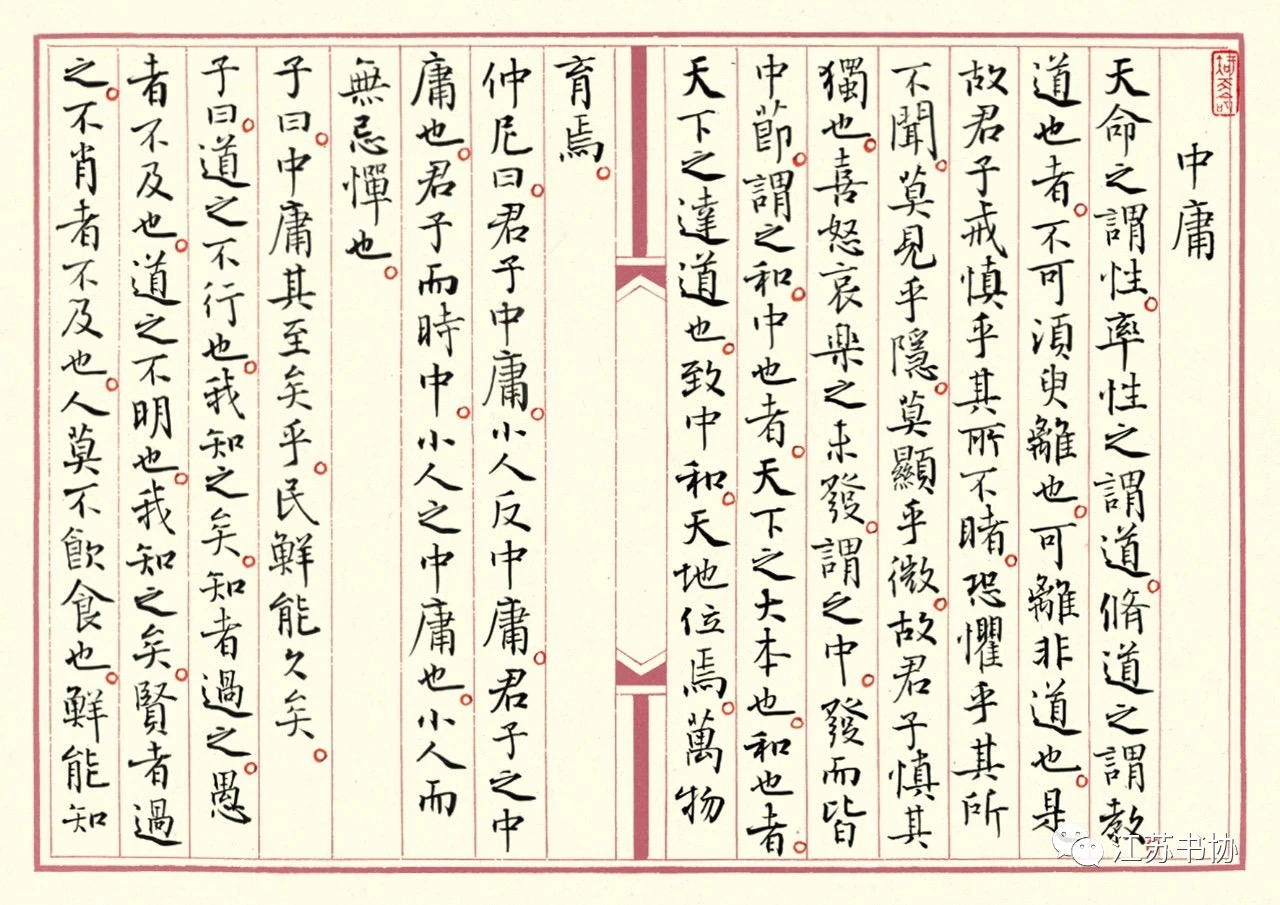 中庸
天命之謂性。率性之謂道。脩道之謂教。
道也者。不可須臾離也。可離非道也。是
故君子戒慎乎其所不睹。恐懼乎其所
不聞。莫見乎隱。莫顯乎微。故君子慎其
獨也。喜怒哀樂之未發。謂之中。發而皆
中節。謂之和。中也者。天下之大本也。和也者。
天下之達道也。致中和。天地位焉。萬物
育焉。
仲尼曰。君子中庸。小人反中庸。君子之中
庸也。君子而時中。小人之中庸也。小人而
無忌憚也。
子曰。中庸其至矣乎。民鮮能久矣。
子曰。道之不行也。我知之矣。知者過之。愚
者不及也。道之不明也。我知之矣。賢者過
之。不肖者不及也。人莫不飲食也。鮮能知
江苏书协